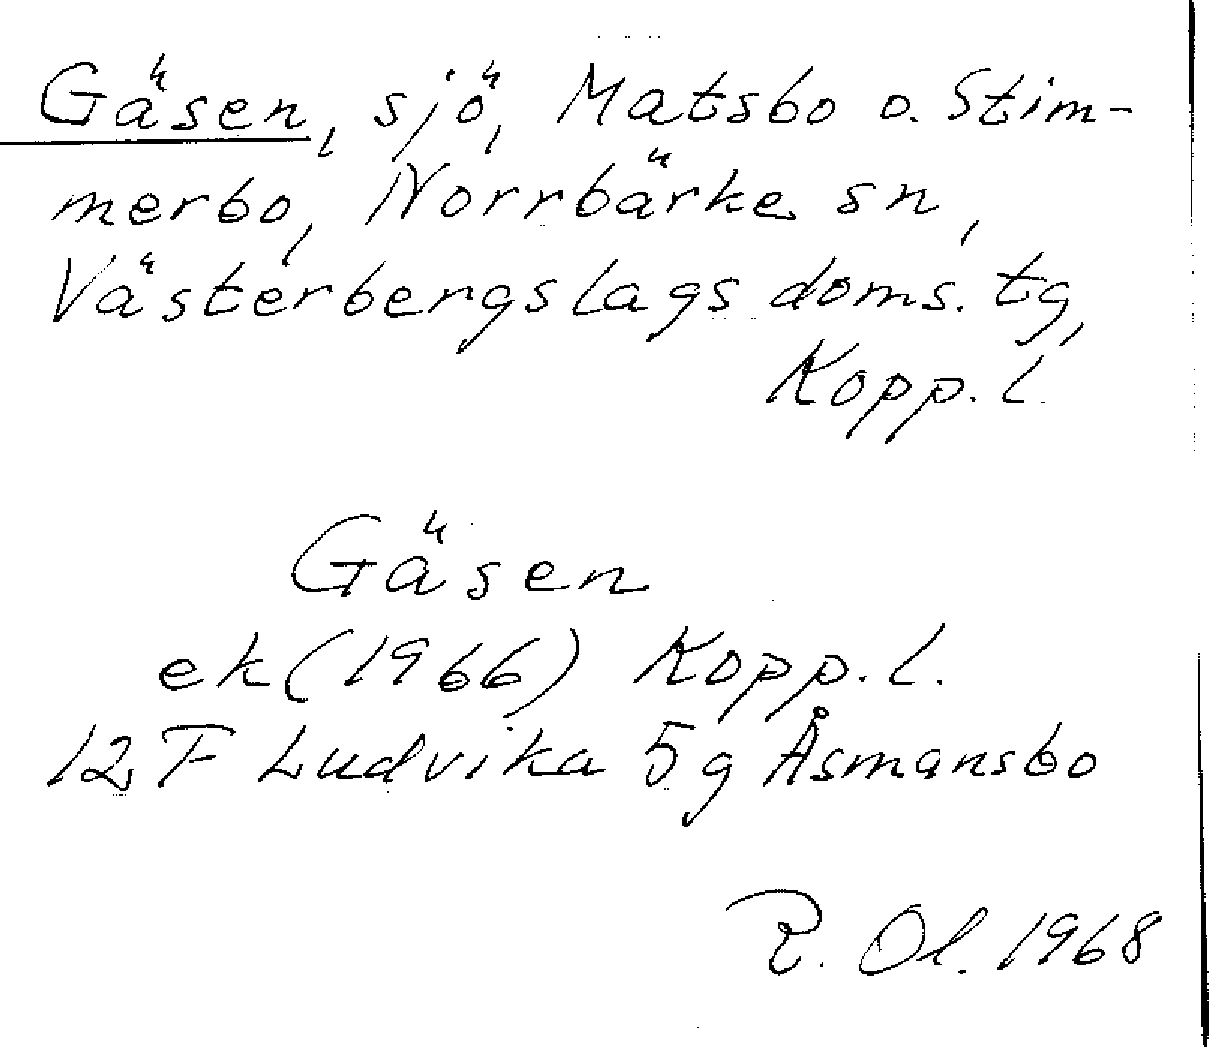 Gäsen, sjö, Matsbo o. Stim-
merbo, Norrbärke sn,
Västerbergslags doms. tg,
Kopp. l.
Gäsen
ek (1966) Kopp. l.
12 F Ludvika 5 g Åsmansbo
R. Ol. 1968